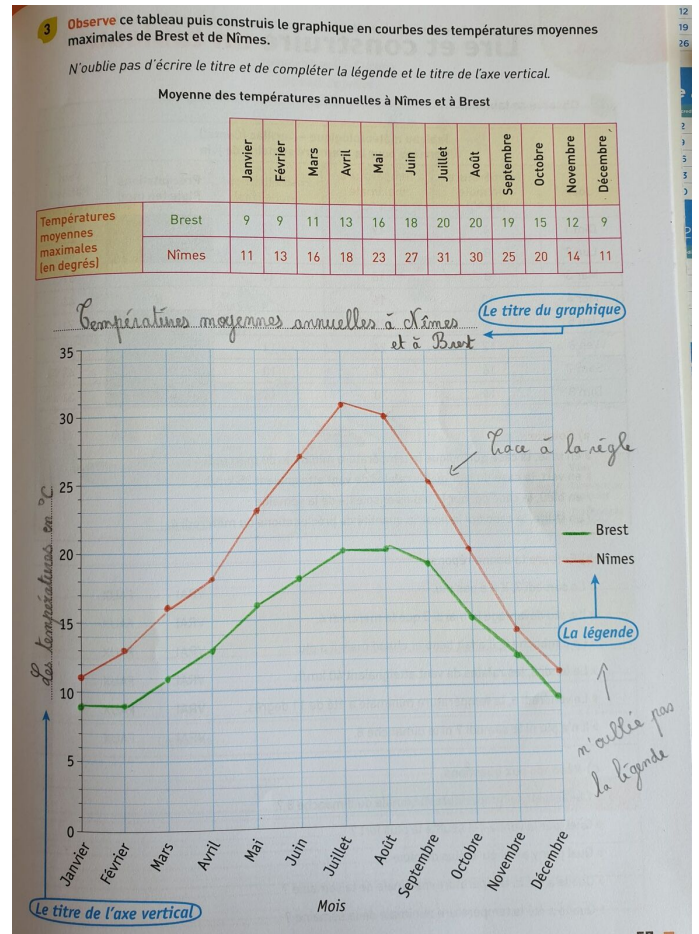 3 Observe ce tableau puis construis le graphique en courbes des températures moyennes
maximales de Brest et de Nîmes.
N'oublie pas d'écrire le titre et de compléter la légende et le titre de l'axe vertical.
Moyenne des températures annuelles à Nîmes et à Brest
Janvier Février Mars Avril Mai Juin Juillet Août Septembre Octobre Novembre Décembre
Températures
moyennes
maximales
(en degrés)
Brest 9 9 11 13 16 18 20 20 19 15 12 9
Nîmes 11 13 16 18 23 27 31 30 25 20 14 11
Températures moyennes annuelles à Nîmes
et à Brest
Le titre du graphique
35
30
25
20
15
10
5
0
Les températures en °C
Trace à la règle
Brest
Nîmes
La légende
n'oublie pas
la légende
Janvier Février Mars Avril Mai Juin Juillet Août Septembre Octobre Novembre Décembre
Mois
Le titre de l'axe vertical
12
19
26